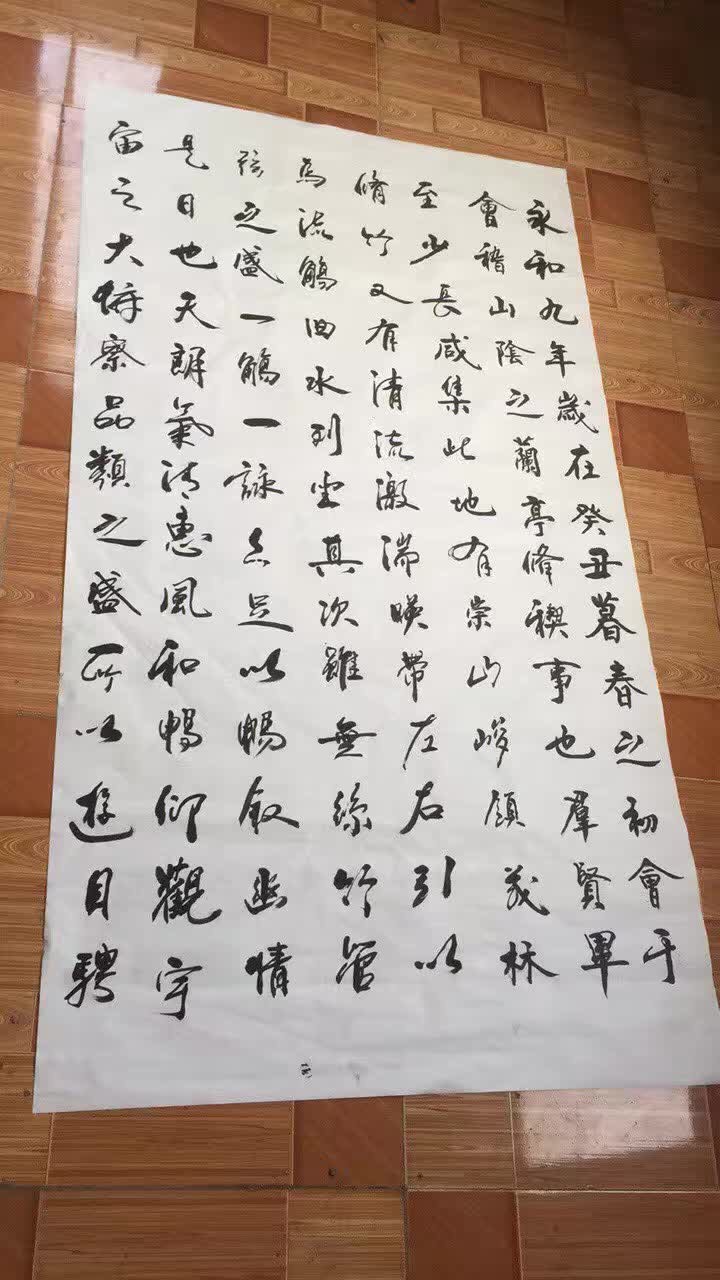 永和九年歲在癸丑暮春之初會于
會稽山陰之蘭亭脩禊事也羣賢畢
至少長咸集此地有崇山峻領茂林
脩竹又有清流激湍暎帶左右引以
為流觴曲水列坐其次雖無絲竹管
弦之盛一觴一詠亦足以暢叙幽情
是日也天朗氣清惠風和暢仰觀宇
宙之大俯察品類之盛所以遊目騁